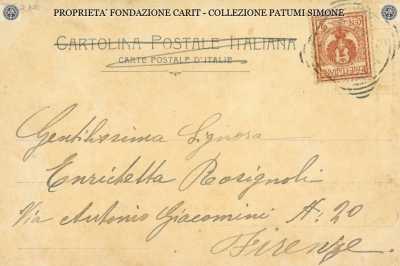 PROPRIETA' FONDAZIONE CARIT - COLLEZIONE PATUMI SIMONE
CARTOLINA POSTALE ITALIANA
CARTE POSTALE D'ITALIE
Gentilissima Signora
Enrichetta Rosignoli
Via Antonio Giacomini N. 20
Firenze